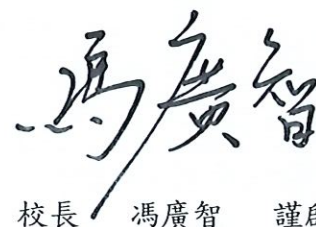 馮廣智
校長 馮廣智 謹啟